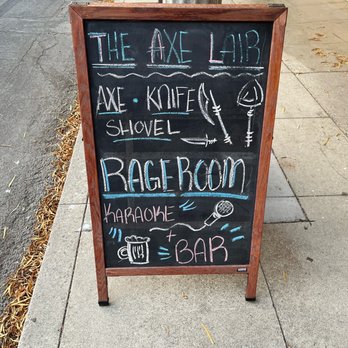 THE AXE LAIR
AXE • KNIFE
SHOVEL
RAGEROOM
KARAOKE
+
BAR